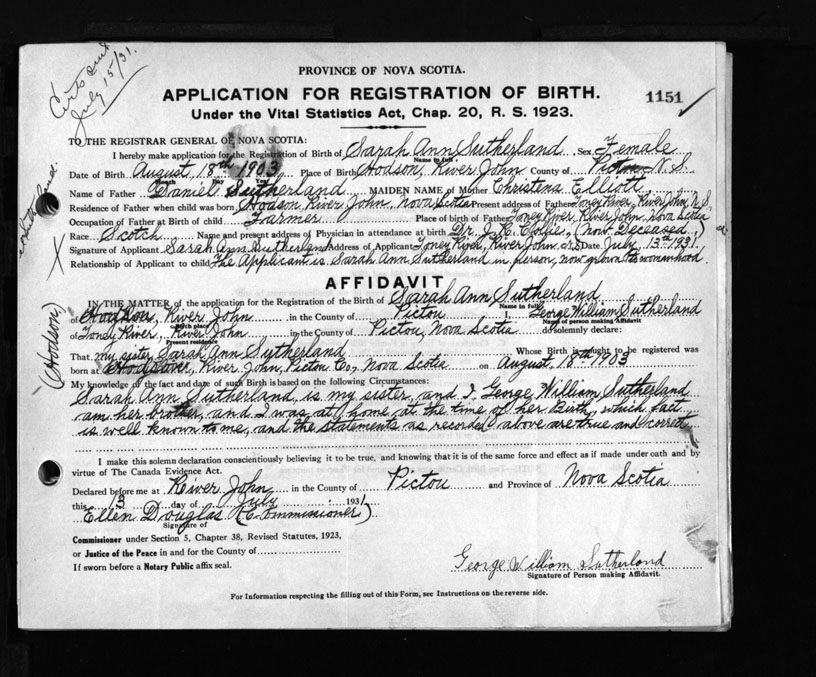 Certs sent
July 15/31.
PROVINCE OF NOVA SCOTIA.
APPLICATION FOR REGISTRATION OF BIRTH.
1151
Under the Vital Statistics Act, Chap. 20, R. S. 1923.
TO THE REGISTRAR GENERAL OF NOVA SCOTIA:
I hereby make application for the Registration of Birth of Sarah Ann Sutherland Sex Female
Name in full
Date of Birth August 18th 1903 Place of Birth Hodson, River John County of Pictou N. S.
Month Day Year
Name of Father Daniel Sutherland MAIDEN NAME of Mother Christena Elliott
Residence of Father when child was born Hodson River John, Nova Scotia Present address of Father Toney River, River John, N. S.
Occupation of Father at Birth of child Farmer Place of birth of Father Toney River, River John Nova Scotia
Race Scotch Name and present address of Physician in attendance at birth Dr. J. K. (Now Deceased,)
Signature of Applicant Sarah Ann Sutherland Address of Applicant Toney River, River John N.S. Date July, 13th 1931.
Relationship of Applicant to child The Applicant is Sarah Ann Sutherland in person, now grown to womanhood.
AFFIDAVIT
IN THE MATTER of the application for the Registration of the Birth of Sarah Ann Sutherland
Name in full
of River John in the County of Pictou I, George William Sutherland
Birth place Name of person making Affidavit
of Toney River, River John in the County of Pictou, Nova Scotia do solemnly declare:
Present residence
(Hodson)
That my sister Sarah Ann Sutherland Whose Birth is sought to be registered was
born at River John, Pictou Co, Nova Scotia on August, 18th 1903
My knowledge of the fact and date of such Birth is based on the following Circumstances:
Sarah Ann Sutherland is my sister, and I, George William Sutherland
am her brother, and I was at home at the time of her Birth, which fact
is well known to me, and the statements as recorded above are true and correct
I make this solemn declaration conscientiously believing it to be true, and knowing that it is of the same force and effect as if made under oath and by
virtue of The Canada Evidence Act.
Declared before me at River John in the County of Pictou and Province of Nova Scotia
this 13 day of July 1931
Ellen Douglas (Commissioner)
Signature of
Commissioner under Section 5, Chapter 38, Revised Statutes, 1923,
or Justice of the Peace in and for the County of
If sworn before a Notary Public affix seal.
George William Sutherland
Signature of Person making Affidavit.
For Information respecting the filling out of this Form, see Instructions on the reverse side.